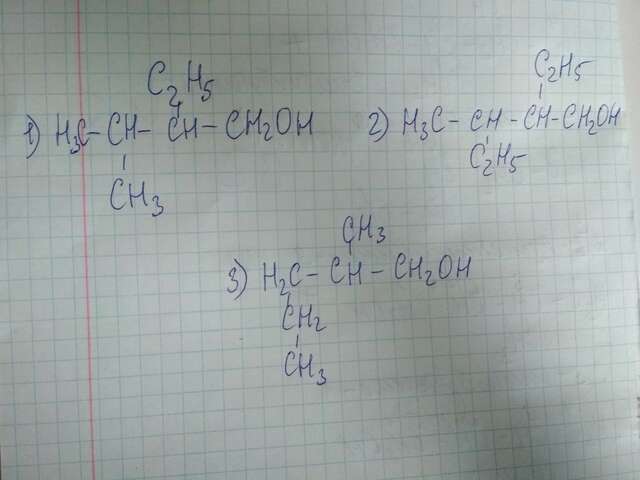 C₂H₅
1) H₃C – CH – CH – CH₂OH
CH₃
C₂H₅
2) H₃C – CH – CH – CH₂OH
C₂H₅
CH₃
3) H₂C – CH – CH₂OH
CH₂
CH₃